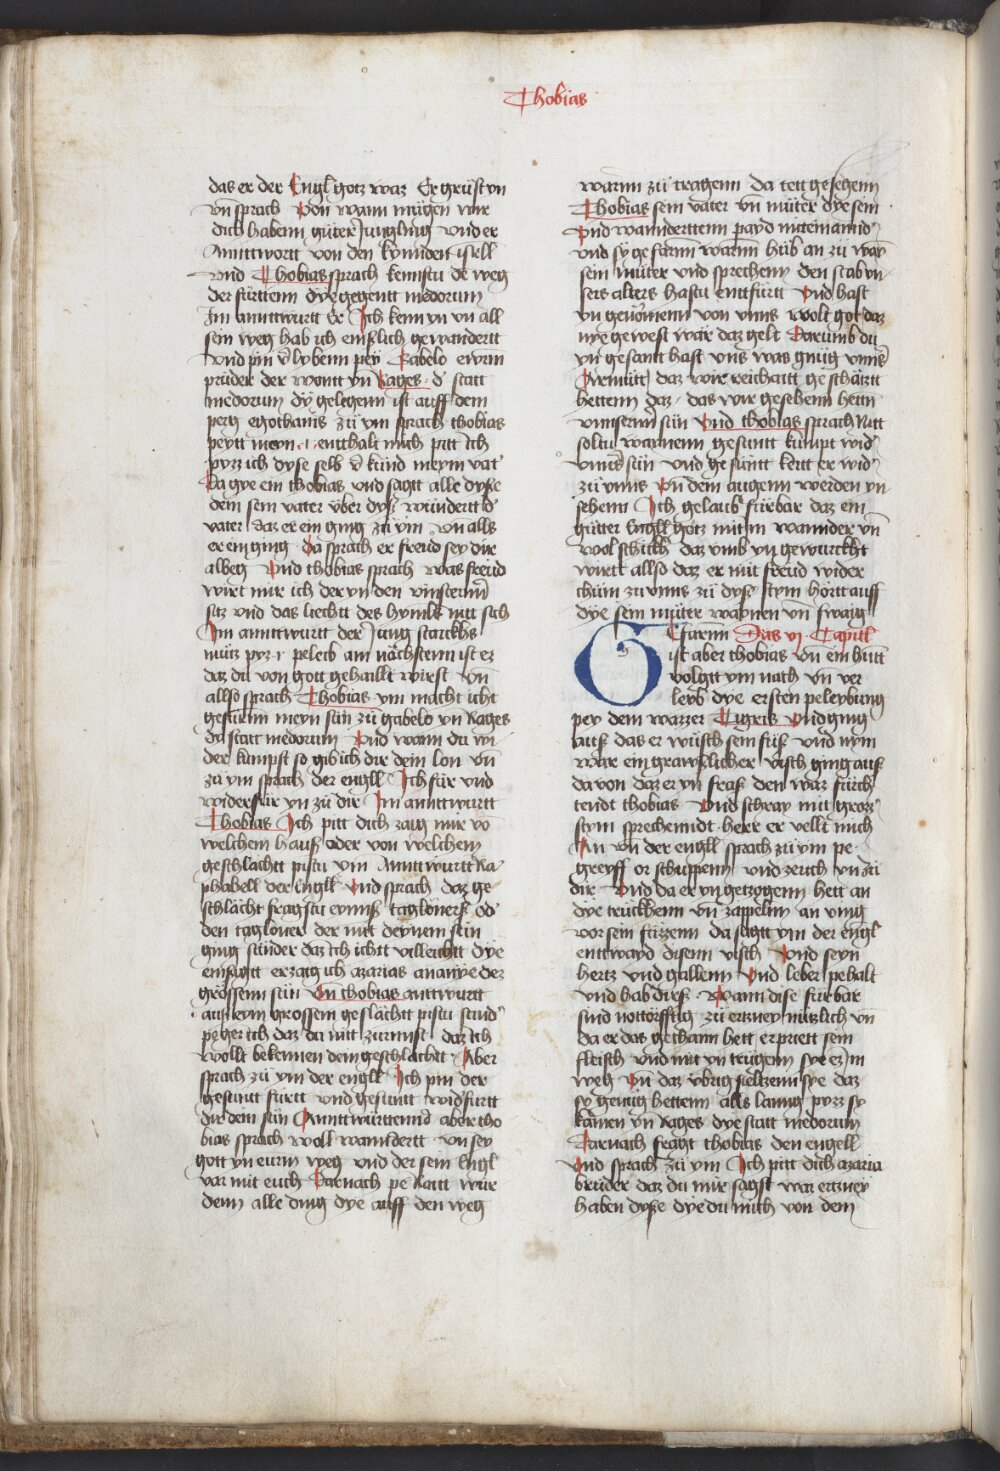 Thobias
das er der Engl gotz waz Er grüst yn
vn̄ sprach Von wann mügen wir
dich habenn güter Jungling vnd er
Anntwortt von den kynnden isrell
vnd Thobias sprach kennstu de weg
der fürttenn dye gegentt medorum
Im anntwurtt Er Ich kenn yn vn all
sein weg hab ich emßlich gewandertt
vnd pin v̄lybenn pey Gabelo ewrm
prüder der wont yn Rages d' statt
medorum dy gelegenn ist auff dem
perg egothanis zü ym sprach thobias
peytt meyn .i. entthalt mich pitt Ich
pyzz ich dyse selb v̄künd meym vat'
Da gye ein thobias vnd sagtt alle dyse
dem sein vater vber dyß wündertt d'
vater daz er ein ging zü ym vn alls
er ein ging Da sprach er freud sey dir
albeg Vnd thobias sprach was freud
wirt mir ich der yn den vinsternn
sitz vnd das liechtt des hymls nitt sich
Im anntwurtt der Jung starckhs
mütz pyz .i. peleib am nächstenn ist ez
daz du von gott gehaillt wirst vn̄
allso sprach Thobias ym macht icht
gefürnn meyn sün zü gabelo yn Rages
dy statt medorum Vnd wann du wi
der kümpst so gib ich dir dein lon vn̄
zü ym sprach der engll Ich für vnd
widerfür yn zü dir Im anntwurtt
Thobias Ich pitt dich zaig mir vō
welchem hauß oder von welchem
geschlächtt pistu vm Anntwurtt Ra
phahell der Engll Vnd sprach daz ge
schlächt fragstu eynnß taglönerß od'
den taglöner der mit deynem sün
ging sünder daz Ich ichtt villeichtt dye
einsagtt erzaig ich azarias ananye dez
grössenn sün Vn̄ thobias anttwurtt
aus eym grossem geslächtt pistu sund'
peger ich daz du nitt zürnnst daz Ich
wollt bekennen dein geschlächtt Aber
sprach zü ym der engll Ich pin der
gesuntt fürtt vnd gesuntt widfürtt
dir dein sün Anntwürttennd aber tho
bias sprach woll wanndertt vn̄ sey
gott yn eurm weg vnd der sein Engl
var mit euch Darnach pe Raitt wur
denn alle ding dye auff den weg
warnn zü tragenn da tett gesegenn
Thobias sein vater vn̄ müter dye sein
Vnd wannderttenn payd miteinannd'
vnd sy gefarnn warnn hüb an zü wayn̄
sein müter vnd sprechenn den stab vn
sers alters hastu enttfürtt Vnd hast
yn genömenn von vnns wolt got daz
nye gewest wär daz gelt Darumb du
yn gesantt hast vns was gnüg vnns'
Armütt daz wir reichaitt geschätztt
hettenn daz das wir gesehenn hettn
vnnsernn sün Vnd thobias sprach Nitt
soltu wannenn gesuntt kümpt wid'
vnns' sün vnd gesüntt kertt er wid'
zü vnns Vn̄ dein augenn werden yn
sehenn Ich gelaub fürbar daz ein
gütter Engll gotz mit im wannder vn̄
wol schickh daz vmb yn gewurckht
wirtt allso daz er mit freud wider
chüm zü vnns zü dyse stym hörtt auff
dye sein müter waynen vn̄ swaig
GEfarnn Das vi Capitl
ist aber thobias vn̄ ein hütt
volgtt ym nach vn ver
leyb dye ersten peleybung
pey dem wazzer Tygris Vnd ging
auß das er wüsch sein füß vnd nym
war ein grawßlicher visch ging auß
da von daz er yn fraß den waz fürch
tendt thobias Vnd schray mit groz'
stym sprechenndt herr er vellt mich
An vn̄ der engll sprach zü ym pe
greyff or schuppenn vnd zeuch yn zü
dir Vnd da er yn getzogenn hett an
dye trückhenn vn̄ zappeln an ving
vor sein füzzenn da sagtt ym der engl
enttwayd disenn visch Vnd seyn
hertz vnd gallenn Vnd leber pehalt
vnd hab dirß Wann dise fürbar
sind nottorfftig zü ertzney nützlich vn̄
da er das gethann hett er priett sein
fleisch vnd mit yn trügenn sye ez im
weg Vn̄ daz vbrig sieltzenn sye daz
sy genüg hettenn alls lanng pyzz sy
kämen yn Rages dye statt medorum
Darnach fragtt thobias den engell
Vnd sprach zü ym Ich pitt dich azaria
brüder daz du mir sagst waz ertzney
haben dyse dye du mich von dem